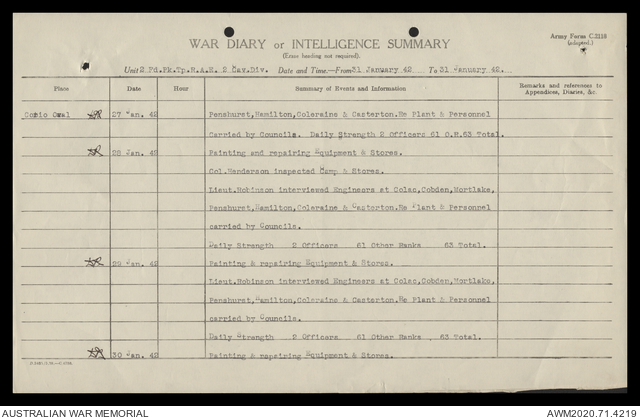 Army Form C.2118
(adapted.)
WAR DIARY or INTELLIGENCE SUMMARY
(Erase heading not required).
Unit 2 Fd.Pk.Tp.R.A.E. 2 Cav.Div. Date and Time.—From 31 January 42 To 31 January 42.
Place Date Hour Summary of Events and Information Remarks and references to Appendices, Diaries, &c.
Corio Oval 27 Jan. 42 Penshurst,Hamilton,Coleraine & Casterton.Re Plant & Personnel
Carried by Councils. Daily Strength 2 Officers 61 O.R.63 Total.
28 Jan. 42 Painting and repairing Equipment & Stores.
Col.Henderson inspected Camp & Stores.
Lieut.Robinson interviewed Engineers at Colac,Cobden,Mortlake,
Penshurst,Hamilton,Coleraine & Casterton.Re Plant & Personnel
carried by Councils.
Daily Strength 2 Officers 61 Other Ranks 63 Total.
09 Jan. 42 Painting & repairing Equipment & Stores.
Lieut.Robinson interviewed Engineers at Colac,Cobden,Mortlake,
Penshurst,Hamilton,Coleraine & Casterton.Re Plant & Personnel
carried by Councils.
Daily Strength 2 Officers 61 Other Ranks 63 Total.
30 Jan. 42 Painting & repairing Equipment & Stores.
AUSTRALIAN WAR MEMORIAL AWM2020.71.4219